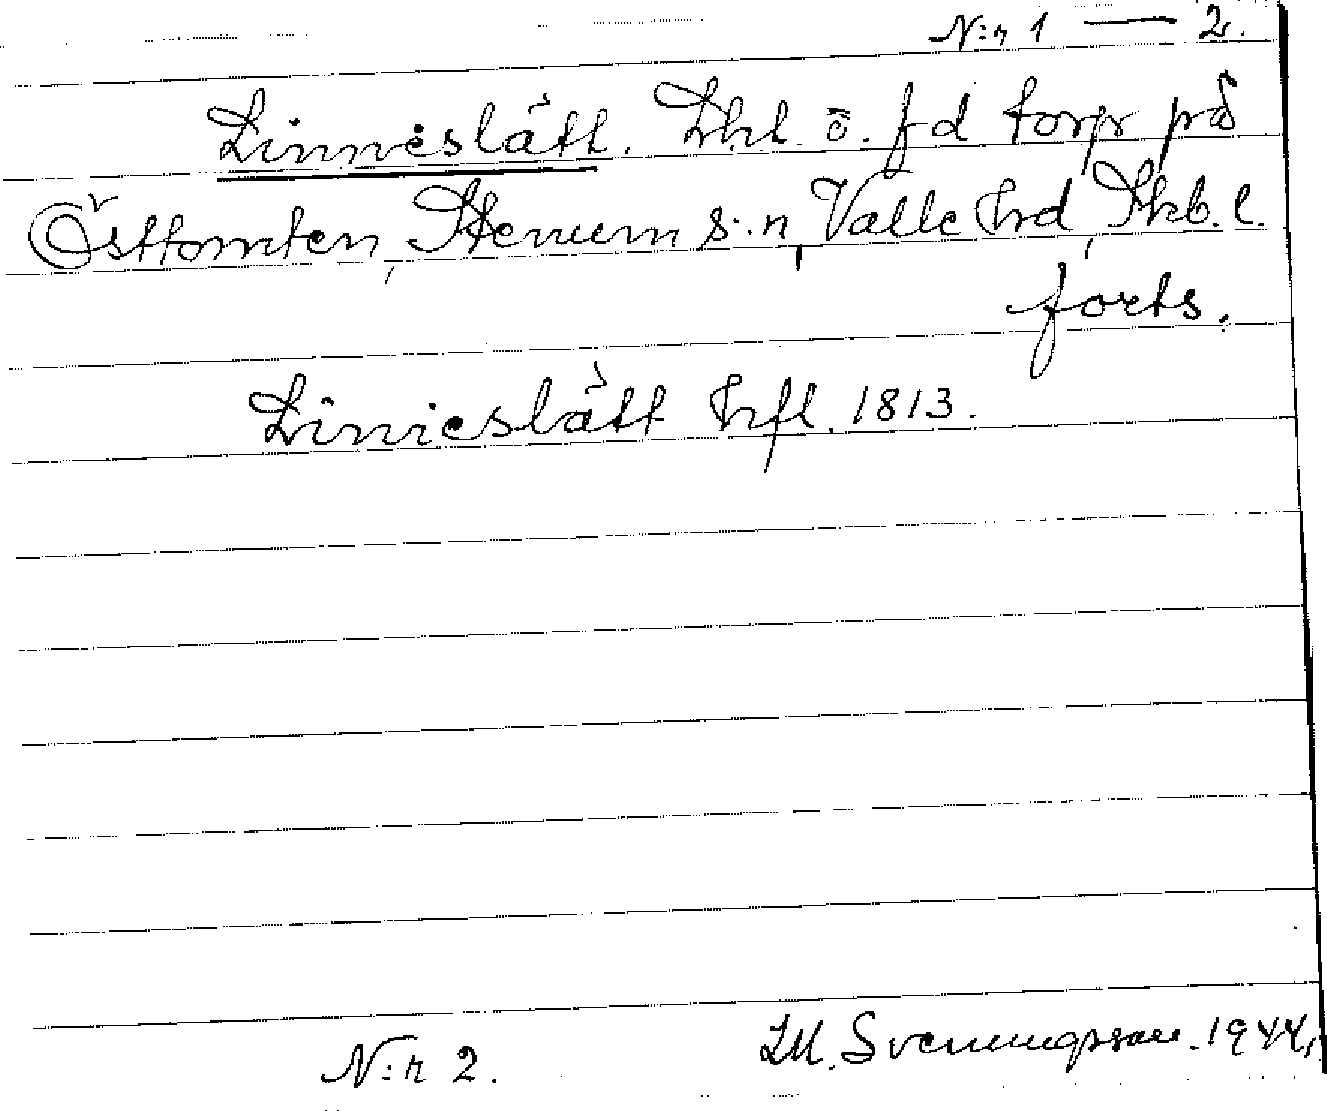 N:r 1 — 2.
Linneslätt. Lht. ö. fd torp på
Östtomten, Stenum s:n, Valle Hrd, Skb. l.
forts.
Linneslätt Hfl. 1813.
N:r 2. Svenungsson. 1944,